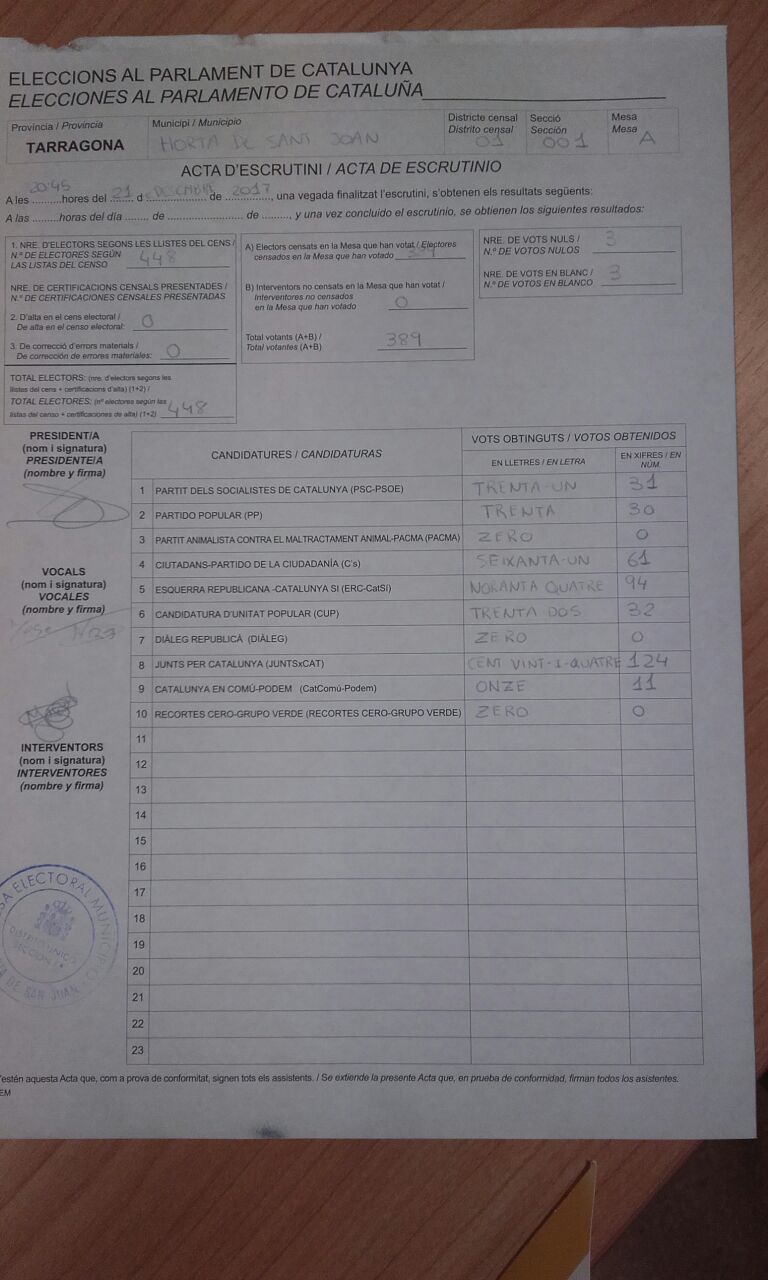 ELECCIONS AL PARLAMENT DE CATALUNYA
ELECCIONES AL PARLAMENTO DE CATALUÑA
Província / Provincia
TARRAGONA
Municipi / Municipio
HORTA DE SANT JOAN
Districte censal
Distrito censal
01
Secció
Sección
001
Mesa
Mesa
A
ACTA D'ESCRUTINI / ACTA DE ESCRUTINIO
A les 20:45 hores del 21 d DESEMBRE de 2017, una vegada finalitzat l'escrutini, s'obtenen els resultats següents:
A las ..........horas del día ....... de ....................... de ........., y una vez concluido el escrutinio, se obtienen los siguientes resultados:
1. NRE. D'ELECTORS SEGONS LES LLISTES DEL CENS /
N.º DE ELECTORES SEGÚN
LAS LISTAS DEL CENSO 448
NRE. DE CERTIFICACIONS CENSALS PRESENTADES /
N.º DE CERTIFICACIONES CENSALES PRESENTADAS
2. D'alta en el cens electoral /
De alta en el censo electoral: 0
3. De correcció d'errors materials /
De corrección de errores materiales: 0
TOTAL ELECTORS: (nre. d'electors segons les
llistes del cens + certificacions d'alta) (1+2) /
TOTAL ELECTORES: (nº electores según las
listas del censo + certificaciones de alta) (1+2) 448
A) Electors censats en la Mesa que han votat / Electores
censados en la Mesa que han votado
B) Interventors no censats en la Mesa que han votat /
Interventores no censados
en la Mesa que han votado 0
Total votants (A+B) /
Total votantes (A+B) 389
NRE. DE VOTS NULS /
N.º DE VOTOS NULOS 3
NRE. DE VOTS EN BLANC /
N.º DE VOTOS EN BLANCO 3
PRESIDENT/A
(nom i signatura)
PRESIDENTE/A
(nombre y firma)
VOCALS
(nom i signatura)
VOCALES
(nombre y firma)
INTERVENTORS
(nom i signatura)
INTERVENTORES
(nombre y firma)
CANDIDATURES / CANDIDATURAS
VOTS OBTINGUTS / VOTOS OBTENIDOS
EN LLETRES / EN LETRA
EN XIFRES / EN NÚM.
1 PARTIT DELS SOCIALISTES DE CATALUNYA (PSC-PSOE) TRENTA-UN 31
2 PARTIDO POPULAR (PP) TRENTA 30
3 PARTIT ANIMALISTA CONTRA EL MALTRACTAMENT ANIMAL-PACMA (PACMA) ZERO 0
4 CIUTADANS-PARTIDO DE LA CIUDADANÍA (C's) SEIXANTA-UN 61
5 ESQUERRA REPUBLICANA -CATALUNYA SI (ERC-CatSí) NORANTA QUATRE 94
6 CANDIDATURA D'UNITAT POPULAR (CUP) TRENTA DOS 32
7 DIÀLEG REPUBLICÀ (DIÀLEG) ZERO 0
8 JUNTS PER CATALUNYA (JUNTSxCAT) CENT VINT-I-QUATRE 124
9 CATALUNYA EN COMÚ-PODEM (CatComú-Podem) ONZE 11
10 RECORTES CERO-GRUPO VERDE (RECORTES CERO-GRUPO VERDE) ZERO 0
11
12
13
14
15
16
17
18
19
20
21
22
23
ELECTORAL MUNICIP
DISTRITO UNICO
SECCION 1
DE SAN JUAN
estén aquesta Acta que, com a prova de conformitat, signen tots els assistents. / Se extiende la presente Acta que, en prueba de conformidad, firman todos los asistentes.
EM